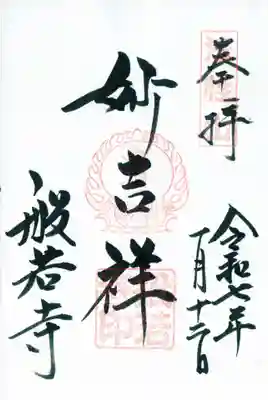 奉拝
令和七年
一月十二日
妙吉祥
般若寺